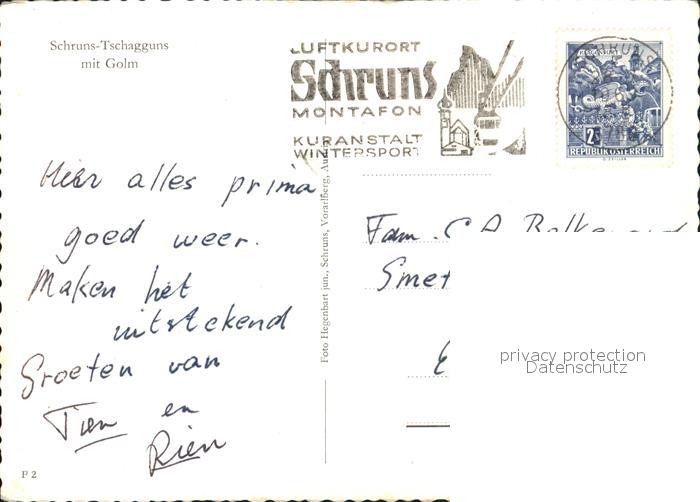 Schruns-Tschagguns
mit Golm
LUFTKURORT
Schruns
MONTAFON
KURANSTALT
WINTERSPORT
2S
REPUBLIK ÖSTERREICH
Hier alles prima
goed weer.
Maken het
uitstekend
Groeten van
Tien en
Rien
Foto Hegenbart jun., Schruns, Vorarlberg, Austria
Fam. C A
Smet
privacy protection
Datenschutz
F 2